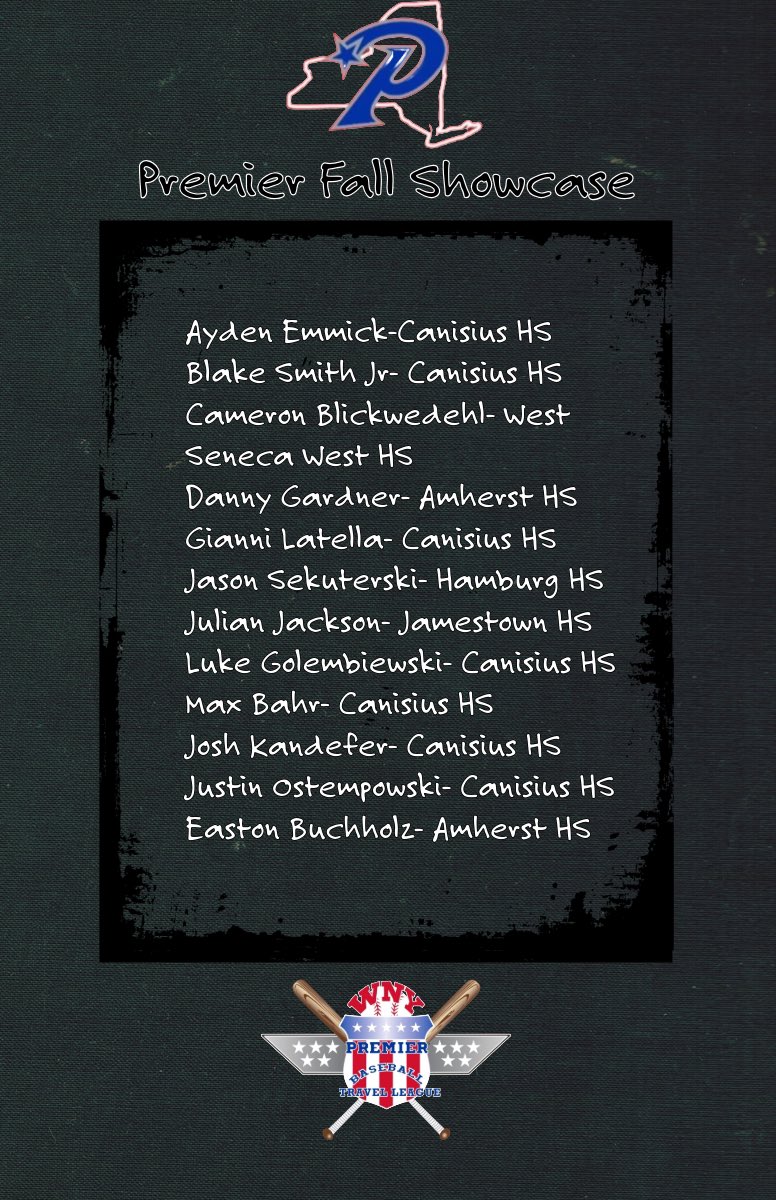 P
Premier Fall Showcase
Ayden Emmick-Canisius HS
Blake Smith Jr- Canisius HS
Cameron Blickwedehl- West
Seneca West HS
Danny Gardner- Amherst HS
Gianni Latella- Canisius HS
Jason Sekuterski- Hamburg HS
Julian Jackson- Jamestown HS
Luke Golembiewski- Canisius HS
Max Bahr- Canisius HS
Josh Kandefer- Canisius HS
Justin Ostempowski- Canisius HS
Easton Buchholz- Amherst HS
WNY
PREMIER
BASEBALL
TRAVEL LEAGUE